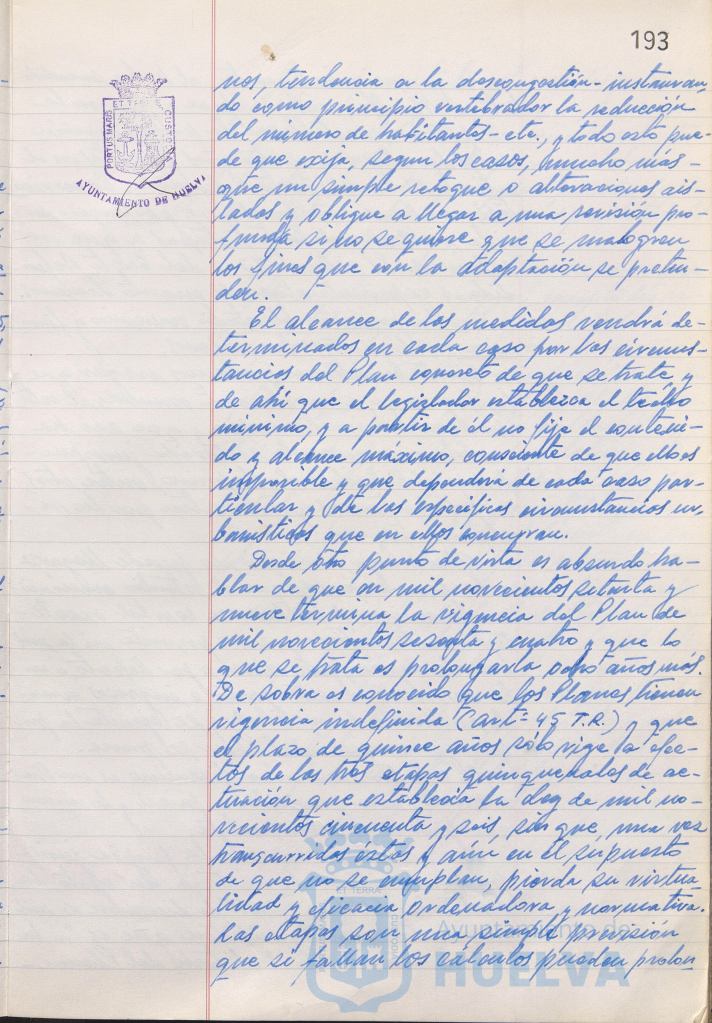 193
PORTUS MARIS ET TERRAE CUSTODIA
AYUNTAMIENTO DE HUELVA
nos, tendencia a la descongestión-instauran-
do como principio vertebrador la reducción
del número de habitantes-etc., y todo esto pue-
de que exija, según los casos, mucho más
que un simple retoque o alteraciones ais-
ladas y obligue a llegar a una revisión pro-
funda si no se quiere que se malogren
los fines que con la adaptación se preten-
den.
El alcance de las medidas vendrá de-
terminados en cada caso por las circuns-
tancias del Plan concreto de que se trate y
de ahí que el legislador establezca el techo
mínimo, y a partir de él no fije el conteni-
do y alcance máximo, consciente de que ello es
imposible y que dependerá de cada caso par-
ticular y de las específicas circunstancias ur-
banísticas que en ellos concurran.
Desde otro punto de vista es absurdo ha-
blar de que en mil novecientos setenta y
nueve termina la vigencia del Plan de
mil novecientos sesenta y cuatro y que lo
que se trata es prolongarla ocho años más.
De sobra es conocido que los Planes tienen
vigencia indefinida (artº 45 T.R.) y que
el plazo de quince años sólo rige a efec-
tos de las tres etapas quinquenales de ac-
tuación que establecía la Ley de mil no-
vecientos cincuenta y seis, sin que, una vez
transcurridos éstos y aún en el supuesto
de que no se cumplan, pierda su virtua-
lidad y eficacia ordenadora y normativa.
Las etapas son una simple previsión
que si fallan los cálculos pueden prolon
Ayuntamiento de
HUELVA